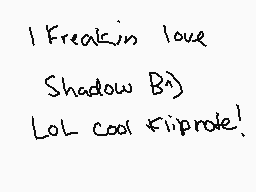 I Freakin love
Shadow B^)
LoL cool Fliprote!